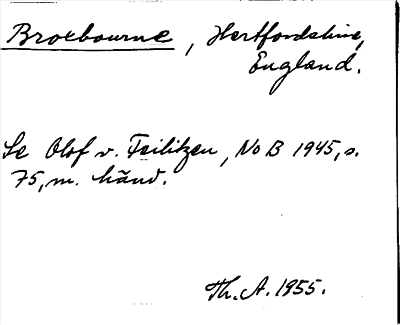 Broxbourne, Hertfordshire,
England.
Se Olof v. Feilitzen, No B 1945, s.
75, m. hänv.
Th. A. 1955.